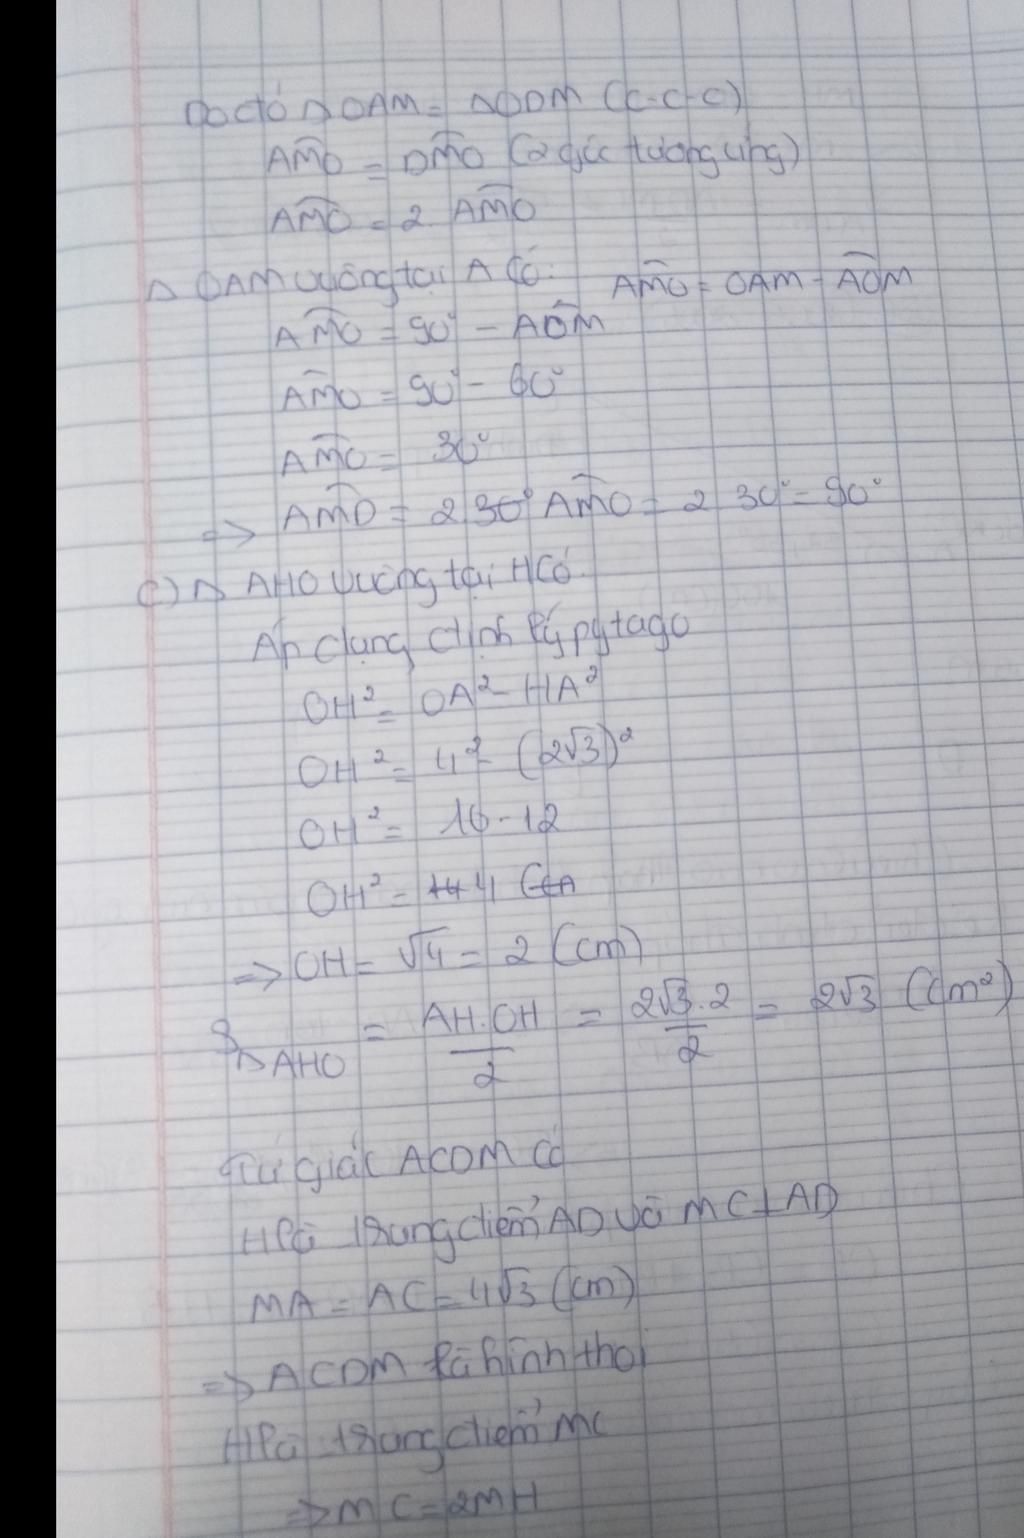 Do đó Δ OAM = ΔODM (c-c-c)
AM̂O = DM̂O (2 góc tương ứng)
AM̂O = 2. AM̂O
Δ OAM vuông tại A có: AM̂O = OAM - AÔM
AM̂O = 90° - AÔM
AM̂O = 90° - 60°
AM̂O = 30°
=> AM̂D = 2 30° AM̂O = 2 30° = 90°
c) Δ AHO vuông tại H có:
Áp dụng định lý pytago
OH² = OA² - HA²
OH² = 4² - (2√3)²
OH² = 16 - 12
OH² = 4
=> OH = √4 = 2 (cm)
S ΔAHO = AH.OH / 2 = 2√3.2 / 2 = 2√3 (cm²)
Tứ giác ACDM có
H là trung điểm AD và MC ⊥ AD
MA = AC = 4√3 (cm)
=> ACDM là hình thoi
H là trung điểm MC
=> MC = 2MH